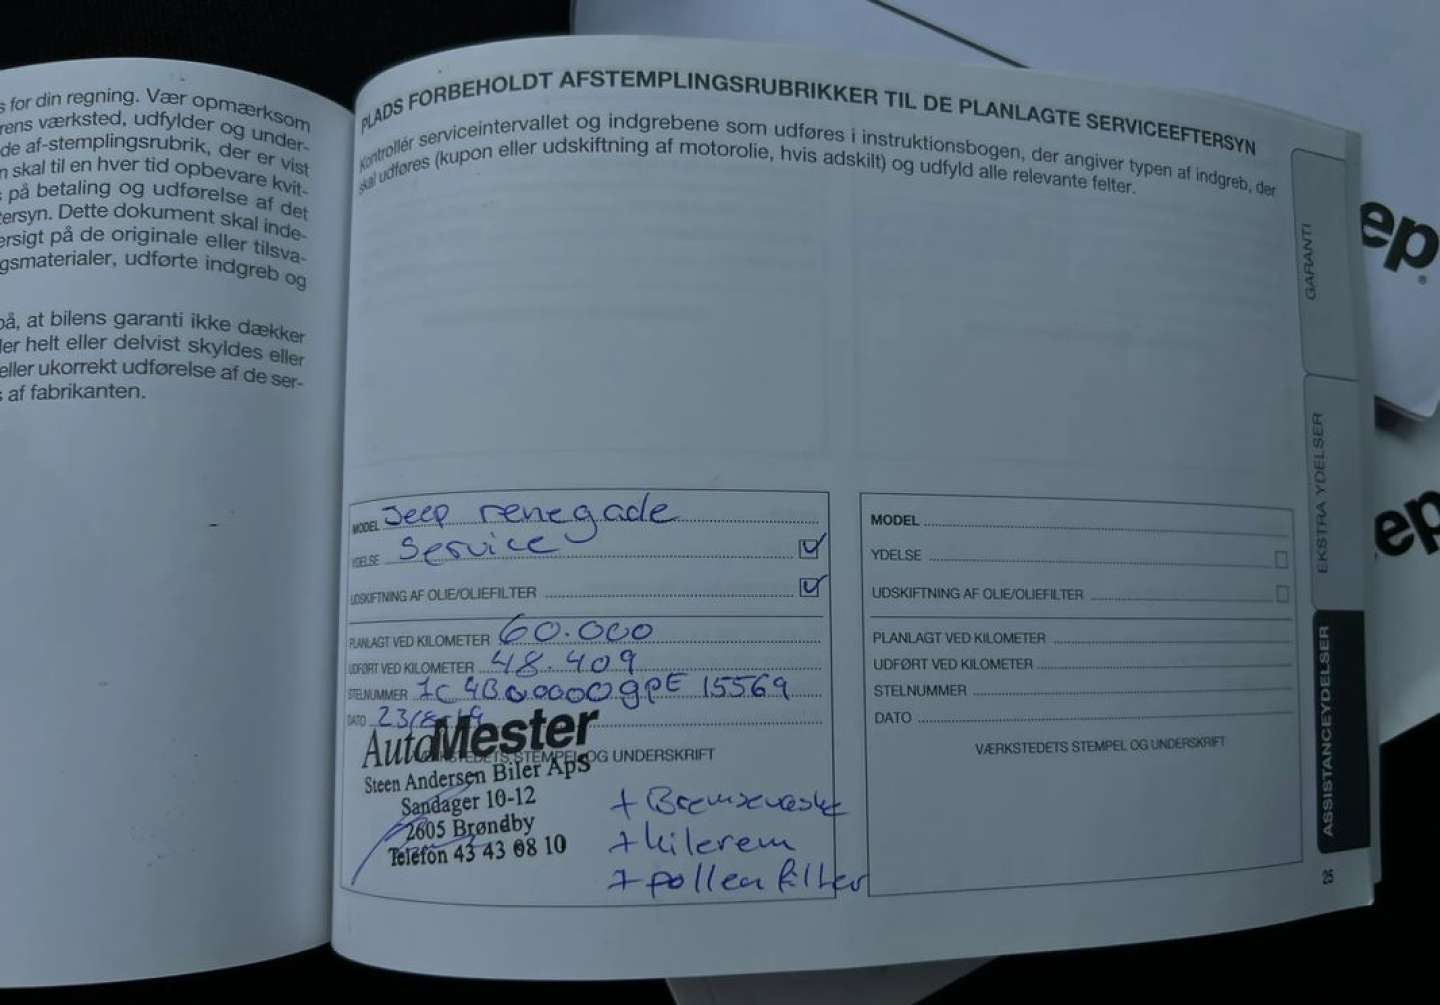 s for din regning. Vær opmærksom
rens værksted, udfylder og under-
de af-stemplingsrubrik, der er vist
n skal til en hver tid opbevare kvit-
s på betaling og udførelse af det
tersyn. Dette dokument skal inde-
ersigt på de originale eller tilsva-
gsmaterialer, udførte indgreb og
på, at bilens garanti ikke dækker
ler helt eller delvist skyldes eller
eller ukorrekt udførelse af de ser-
s af fabrikanten.
PLADS FORBEHOLDT AFSTEMPLINGSRUBRIKKER TIL DE PLANLAGTE SERVICEEFTERSYN
Kontrollér serviceintervallet og indgrebene som udføres i instruktionsbogen, der angiver typen af indgreb, der
skal udføres (kupon eller udskiftning af motorolie, hvis adskilt) og udfyld alle relevante felter.
MODEL Jeep renegade
YDELSE Service
UDSKIFTNING AF OLIE/OLIEFILTER
PLANLAGT VED KILOMETER 60.000
UDFØRT VED KILOMETER 48.409
STELNUMMER 1C4B00000gPE15569
DATO 23/8-19
VÆRKSTEDETS STEMPEL OG UNDERSKRIFT
AutoMester
Steen Andersen Biler Aps
Sandager 10-12
2605 Brøndby
Telefon 43 43 08 10
+ Bremsevæske
+ kilerem
+ pollenfilter
MODEL
YDELSE
UDSKIFTNING AF OLIE/OLIEFILTER
PLANLAGT VED KILOMETER
UDFØRT VED KILOMETER
STELNUMMER
DATO
VÆRKSTEDETS STEMPEL OG UNDERSKRIFT
GARANTI
EKSTRA YDELSER
ASSISTANCEYDELSER
25
ep
ep